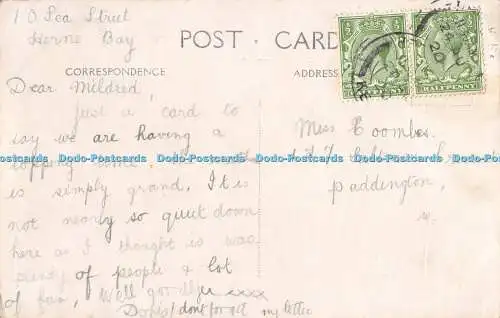 10 Sea Street
Herne Bay
POST CARD
CORRESPONDENCE
ADDRESS
HALFPENNY
HALFPENNY
20
Dear Mildred,
Just a card to
say we are having a
topping time.
Dodo-Postcards Dodo-Postcards Dodo-Postcards Dodo-Postcards Dodo-Postcards Dodo-Postcards
is simply grand. It is
not nearly so quiet down
here as I thought is was
plenty of people & lot
of fun, Well goodbye xxxx
Doris/dont forget my letter
Miss Coombes
Paddington,
W.